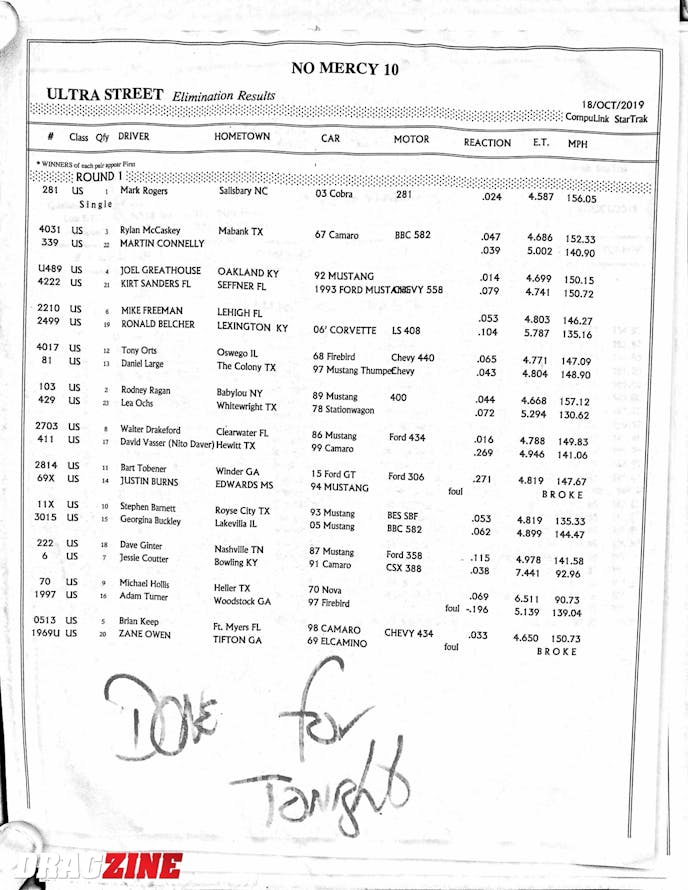 NO MERCY 10
ULTRA STREET Elimination Results
18/OCT/2019
CompuLink StarTrak
# Class Qfy DRIVER HOMETOWN CAR MOTOR REACTION E.T. MPH
* WINNERS of each pair appear First
ROUND 1
281 US 1 Mark Rogers Salisbury NC 03 Cobra 281 .024 4.587 156.05
Single
4031 US 3 Rylan McCaskey Mabank TX 67 Camaro BBC 582 .047 4.686 152.33
339 US 22 MARTIN CONNELLY .039 5.002 140.90
U489 US 4 JOEL GREATHOUSE OAKLAND KY 92 MUSTANG .014 4.699 150.15
4222 US 21 KIRT SANDERS FL SEFFNER FL 1993 FORD MUSTANG CHEVY 558 .079 4.741 150.72
2210 US 6 MIKE FREEMAN LEHIGH FL .053 4.803 146.27
2499 US 19 RONALD BELCHER LEXINGTON KY 06' CORVETTE LS 408 .104 5.787 135.16
4017 US 12 Tony Orts Oswego IL 68 Firebird Chevy 440 .065 4.771 147.09
81 US 13 Daniel Large The Colony TX 97 Mustang Thumper Chevy .043 4.804 148.90
103 US 2 Rodney Ragan Babylou NY 89 Mustang 400 .044 4.668 157.12
429 US 23 Lea Ochs Whitewright TX 78 Stationwagon .072 5.294 130.62
2703 US 8 Walter Drakeford Clearwater FL 86 Mustang Ford 434 .016 4.788 149.83
411 US 17 David Vasser (Nito Daver) Hewitt TX 99 Camaro .269 4.946 141.06
2814 US 11 Bart Tobener Winder GA 15 Ford GT Ford 306 .271 4.819 147.67
69X US 14 JUSTIN BURNS EDWARDS MS 94 MUSTANG foul BROKE
11X US 10 Stephen Barnett Royse City TX 93 Mustang BES SBF .053 4.819 135.33
3015 US 15 Georgina Buckley Lakevilla IL 05 Mustang BBC 582 .062 4.899 144.47
222 US 18 Dave Ginter Nashville TN 87 Mustang Ford 358 .115 4.978 141.58
6 US 7 Jessie Coutter Bowling KY 91 Camaro CSX 388 .038 7.441 92.96
70 US 9 Michael Hollis Heller TX 70 Nova .069 6.511 90.73
1997 US 16 Adam Turner Woodstock GA 97 Firebird foul -.196 5.139 139.04
0513 US 5 Brian Keep Ft. Myers FL 98 CAMARO CHEVY 434 .033 4.650 150.73
1969U US 20 ZANE OWEN TIFTON GA 69 ELCAMINO foul BROKE
DONE for
Tonight
DRAGZINE